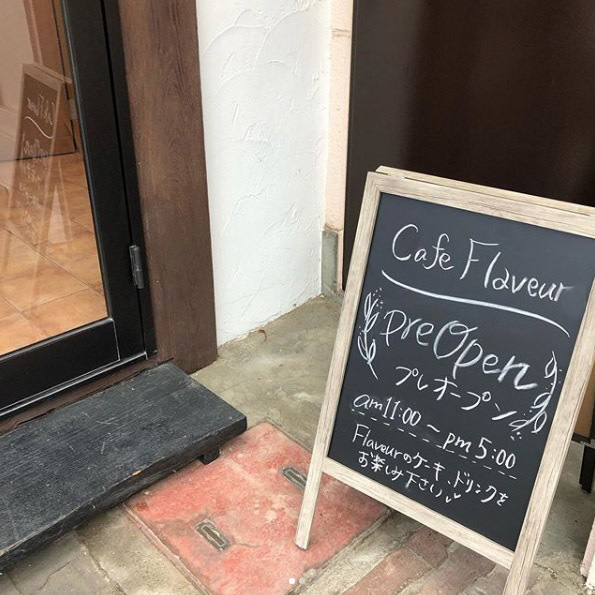 Cafe Flaveur
preOpen
プレオープン
am11:00 ~ pm5:00
Flaveurのケーキ、ドリンクを
お楽しみ下さい
Cafe Flaveur